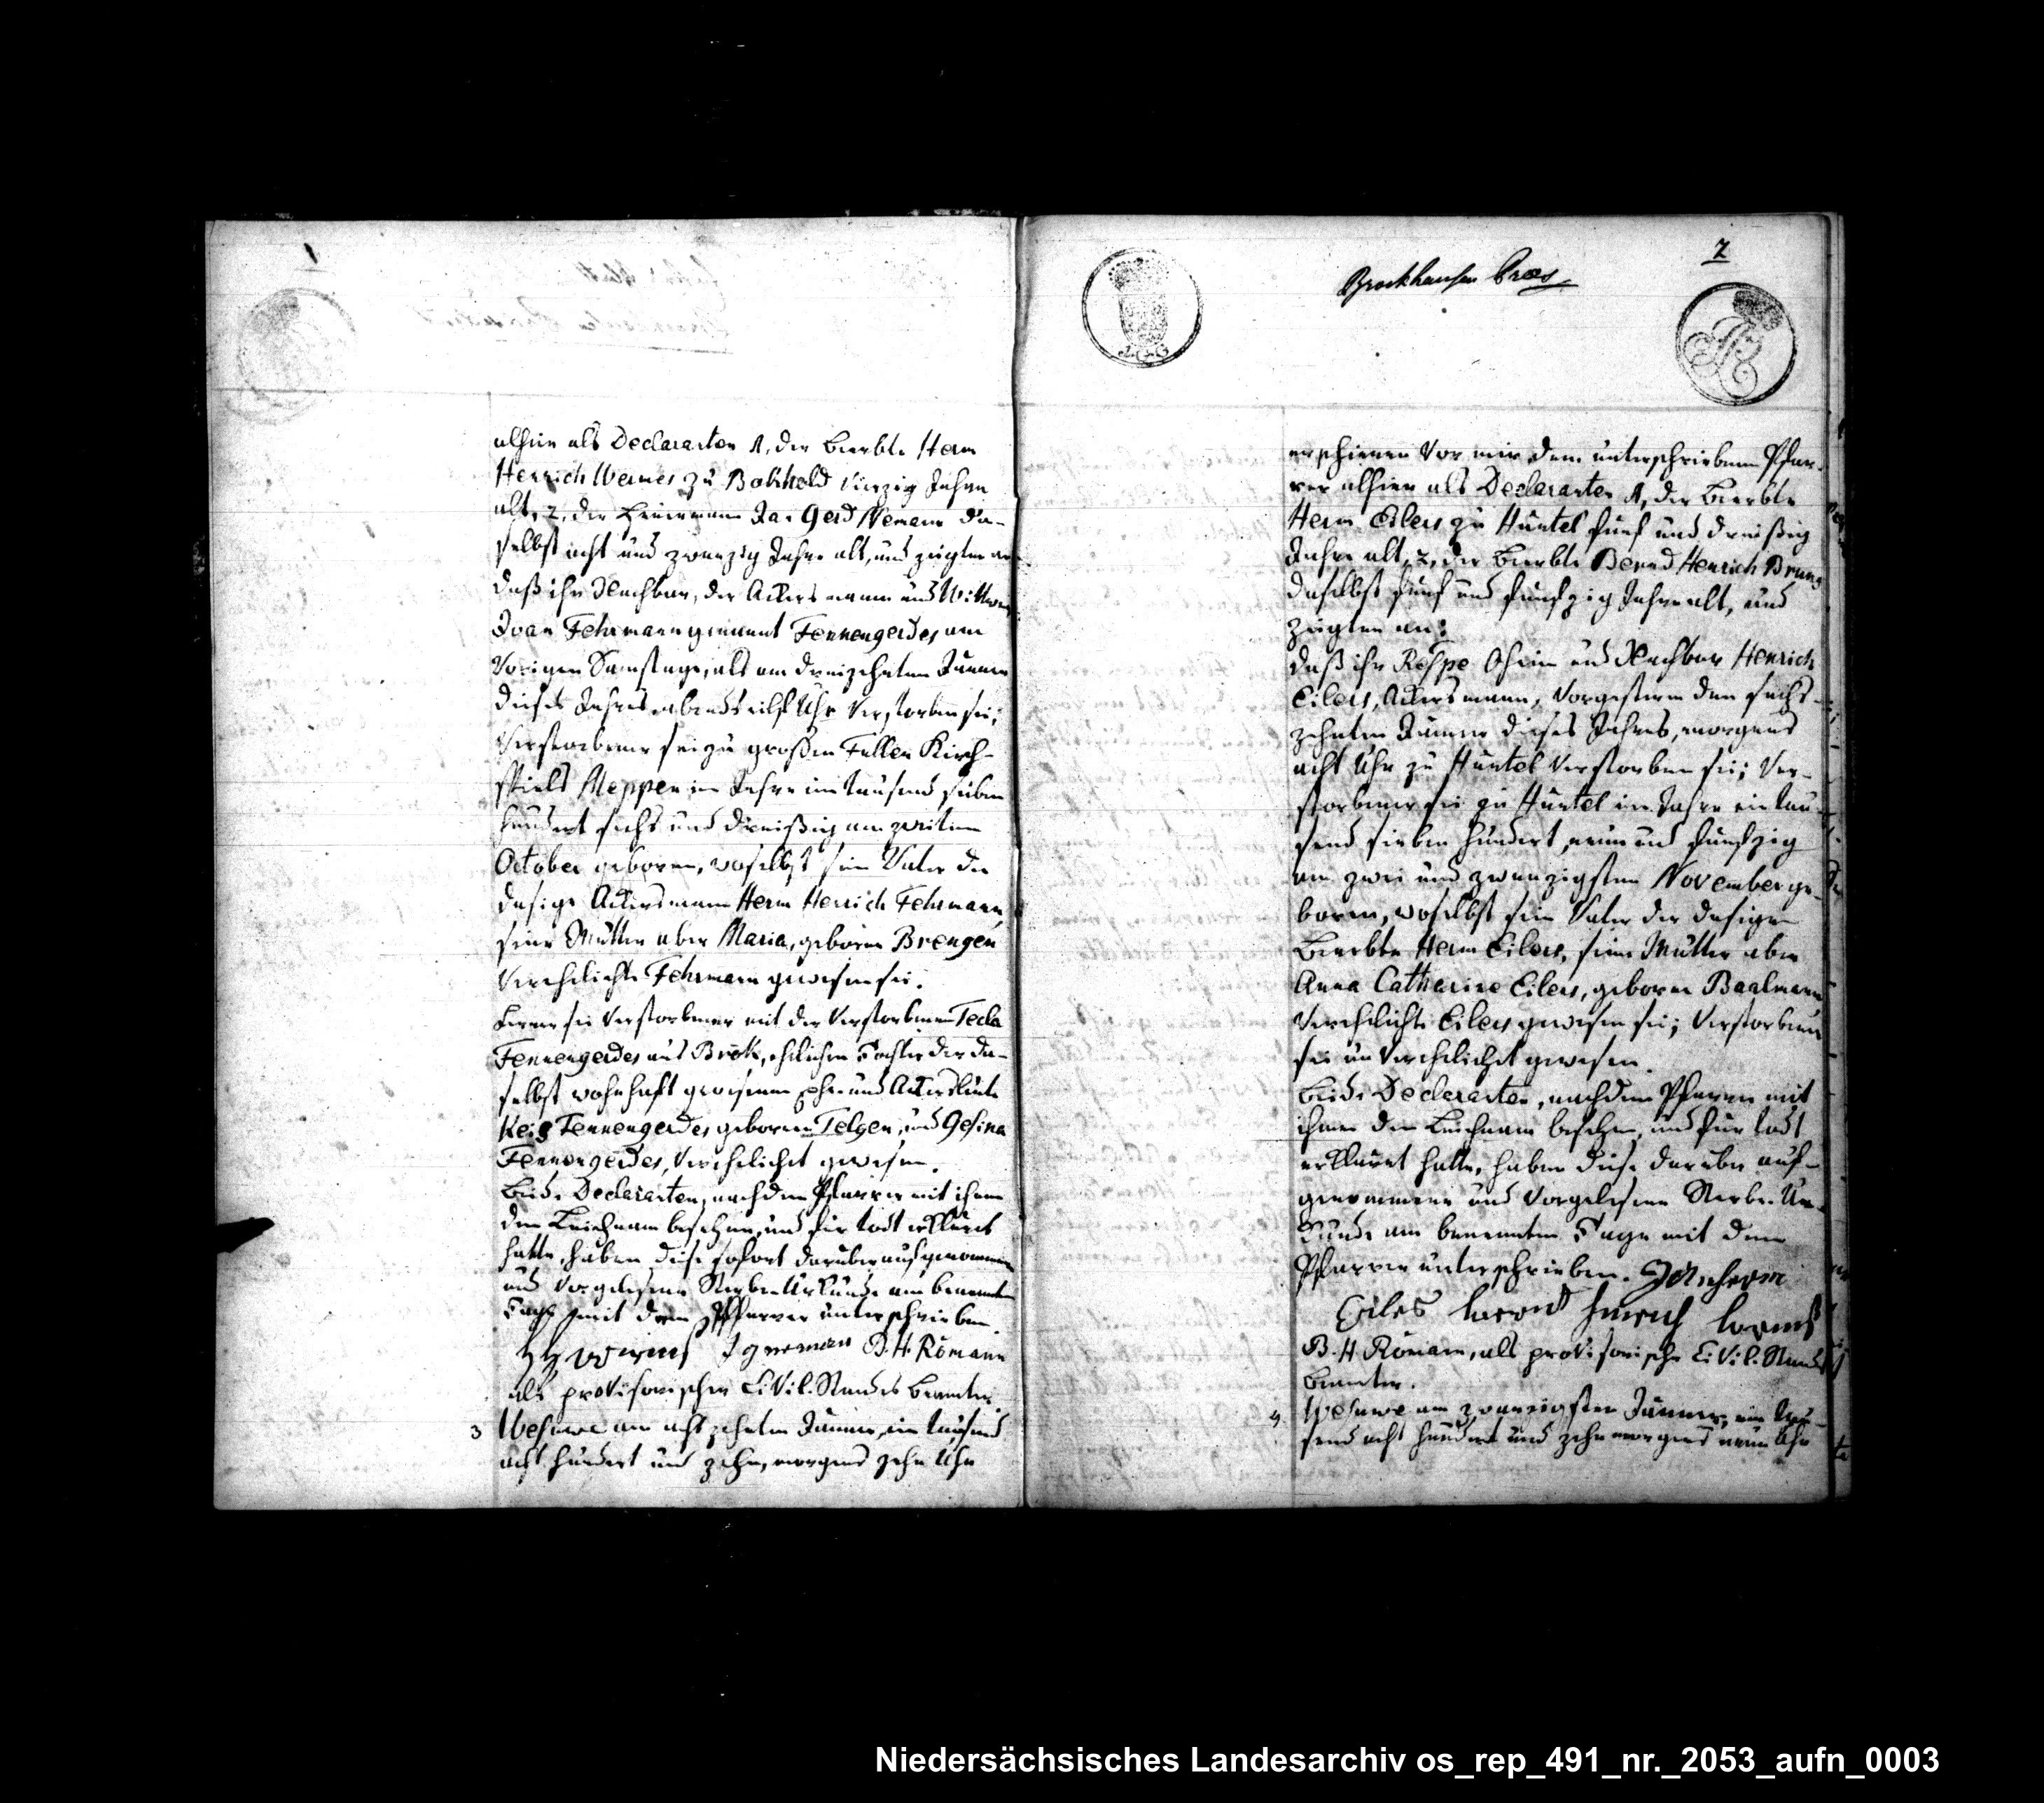 1
alhier als Declaranten 1, der Beerbte Herm
Henrich Wernes zu Bokheld vierzig Jahre
alt, 2, der Heuermann Jan Gerd Nemann da-
selbst acht und zwanzig Jahre alt, und zeigten an
daß ihr Nachbar, der Ackersmann und Wittwer
Joan Fehrmann genannt Fennengerdes am
vorigen Samstage, als am dreizehnten Jänner
dieses Jahres abends eilf Uhr verstorben sei;
Verstorbener sei zu großen Fullen Kirch-
spiels Meppen im Jahre ein tausend sieben
hundert sechs und dreißig am zweiten
October geboren, woselbst sein Vater der
dasige Ackersmann Herm Henrich Fehrmann
seine Mutter aber Maria, geborne Brengen
verehelichte Fehrmann gewesen sei.
Ferner sei Verstorbener mit der verstorbenen Tecla
Fennengerdes aus Brök, ehlichen Tochter der da-
selbst wohnhaft gewesenen Ehe und Ackersleute
Fennengerdes gebornen Telgen, und Gesina
Fennengerdes, verehelichet gewesen.
Beide Declaranten, nachdem Pfarrer mit ihnen
den Leichnam besehen, und für todt erkläret
hatte, haben diese sofort darüber aufgenommene
und vorgelesene Sterbe Urkunde am benannten
Tage mit dem Pfarrer unterschrieben.
HH Wernes J G nemann B. H. Römann
als provisorischer Civil-Standes Beamter.
3 Wesuwe am acht zehnten Jänner, ein tausend
acht hundert und zehn, morgens zehn Uhr
Brockhausen Præs.
2
erschienen vor mir dem unterschriebenen Pfar-
rer alhier als Declaranten 1, der Beerbte
Herm Eilers zu Huntel fünf und dreißig
Jahre alt, 2, der Beerbte Bernd Henrich Bruns
daselbst fünf und funfzig Jahre alt, und
zeigten an:
daß ihr Respe Oheim und Nachbar Henrich
Eilers, Ackersmann, vorgestern den sechs-
zehnten Jänner dieses Jahres, morgens
acht Uhr zu Huntel verstorben sei; Ver-
storbener sei zu Huntel im Jahre ein tau-
send sieben hundert, neun und funfzig
am zwei und zwanzigsten November ge-
boren, woselbst sein Vater der dasige
Beerbte Herm Eilers, seine Mutter aber
Anna Catharine Eilers, geborne Baalmann
verehelichte Eilers gewesen sei; Verstorbener
sei unverehelichet gewesen.
Beide Declaranten, nachdem Pfarrer mit
ihnen den Leichnam besehen, und für todt
erkläret hatte, haben diese darüber auf-
genommene und vorgelesene Sterbe-Ur-
kunde am benannten Tage mit dem
Pfarrer unterschrieben.
Eiles
B. H. Römann, als provisorischer Civil-Standes
Beamter.
4 Wesuwe am zwanzigsten Jänner, ein tau-
send acht hundert und zehn morgens neun Uhr
Niedersächsisches Landesarchiv os_rep_491_nr._2053_aufn_0003